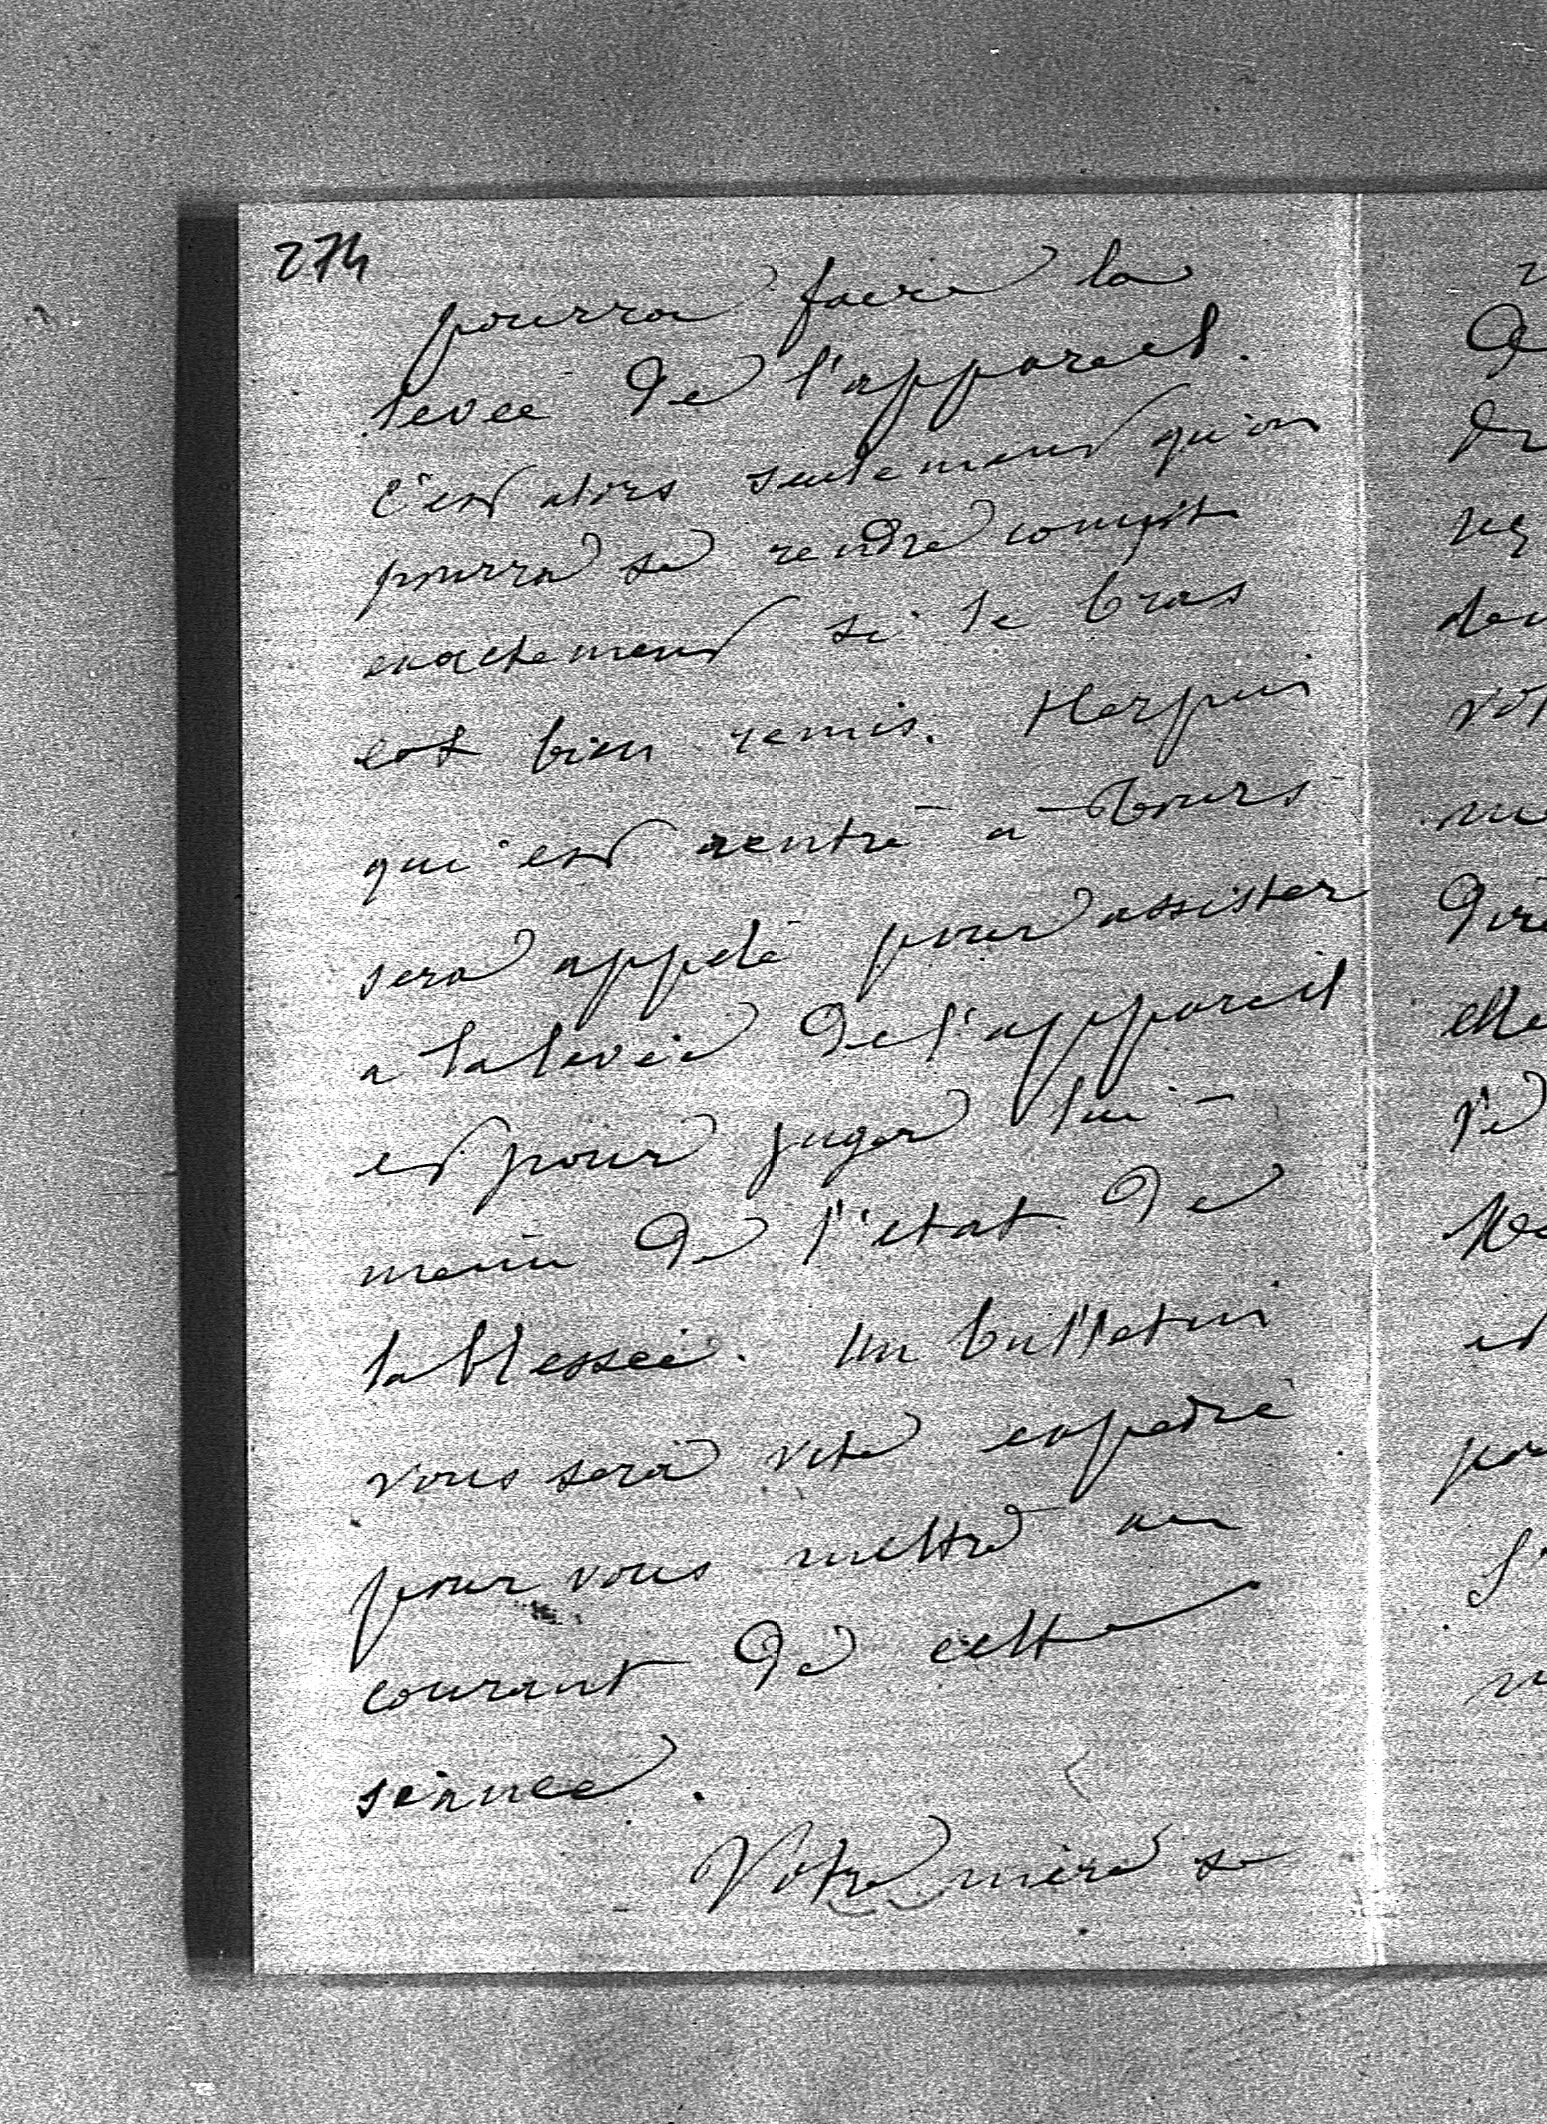 274
pourra faire la
levée de l'appareil.
C'est alors seulement qu'on
pourra se rendre compte
exactement si le bras
est bien remis. Herpin
qui est rentré a Tours
sera appelé pour assister
a la levée de l'appareil
et pour juger lui-
même de l'etat de
la blessée. Un bulletin
vous sera vite expedié
pour vous mettre au
courant de cette
séance.
Votre mère se